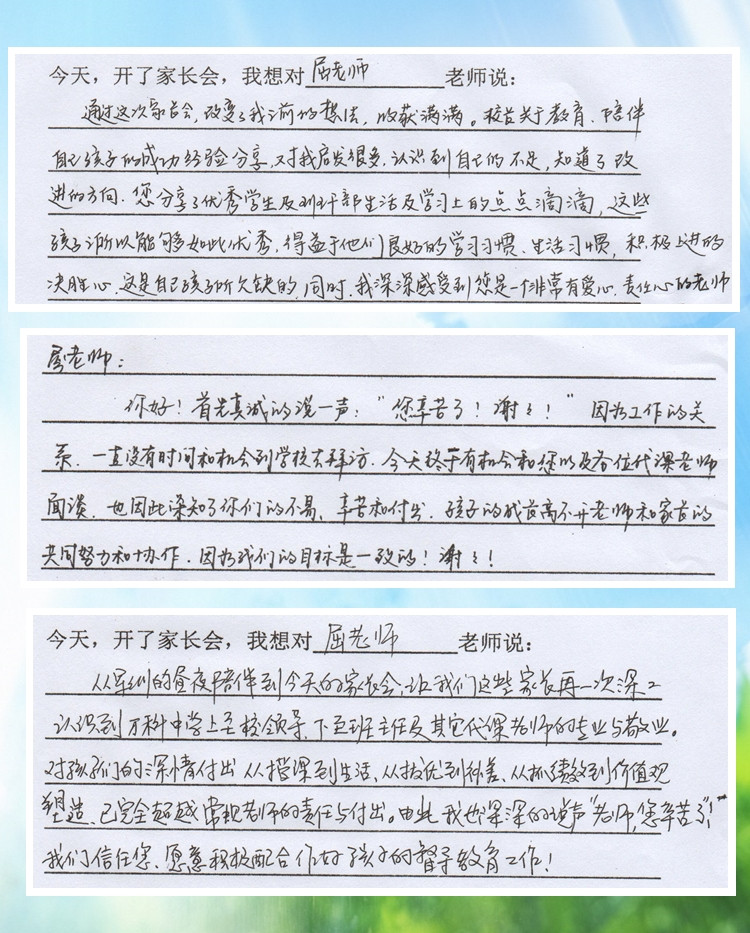 今天，开了家长会，我想对 屈老师 老师说：
通过这次家长会，改变了我之前的想法，收获满满。校长关于教育、陪伴
自己孩子的成功经验分享，对我启发很多，认识到自己的不足，知道了改
进的方向。您分享了优秀学生及班干部生活及学习上的点点滴滴，这些
孩子们所以能够如此优秀，得益于他们良好的学习习惯、生活习惯，积极上进的
决胜心，这是自己孩子所欠缺的，同时，我深深感受到您是一个非常有爱心、责任心的老师
屈老师：
你好！首先真诚的说一声：“您辛苦了！谢谢！”因为工作的关
系，一直没有时间和机会到学校去拜访，今天终于有机会和您以及各位代课老师
面谈，也因此深知了你们的不易、辛苦和付出，孩子的成长离不开老师和家长的
共同努力和协作，因为我们的目标是一致的！谢谢！
今天，开了家长会，我想对 屈老师 老师说：
从军训的昼夜陪伴到今天的家长会，让我们这些家长再一次深深
认识到万科中学上至校领导，下至班主任及其它代课老师的专业与敬业。
对孩子们的深情付出从授课到生活、从拔优到补差、从抓绩效到价值观
塑造、已完全超越常规老师的责任与付出。由此我也深深的说声“老师，您辛苦了！”
我们信任您、愿意积极配合作好孩子的督导教育工作！